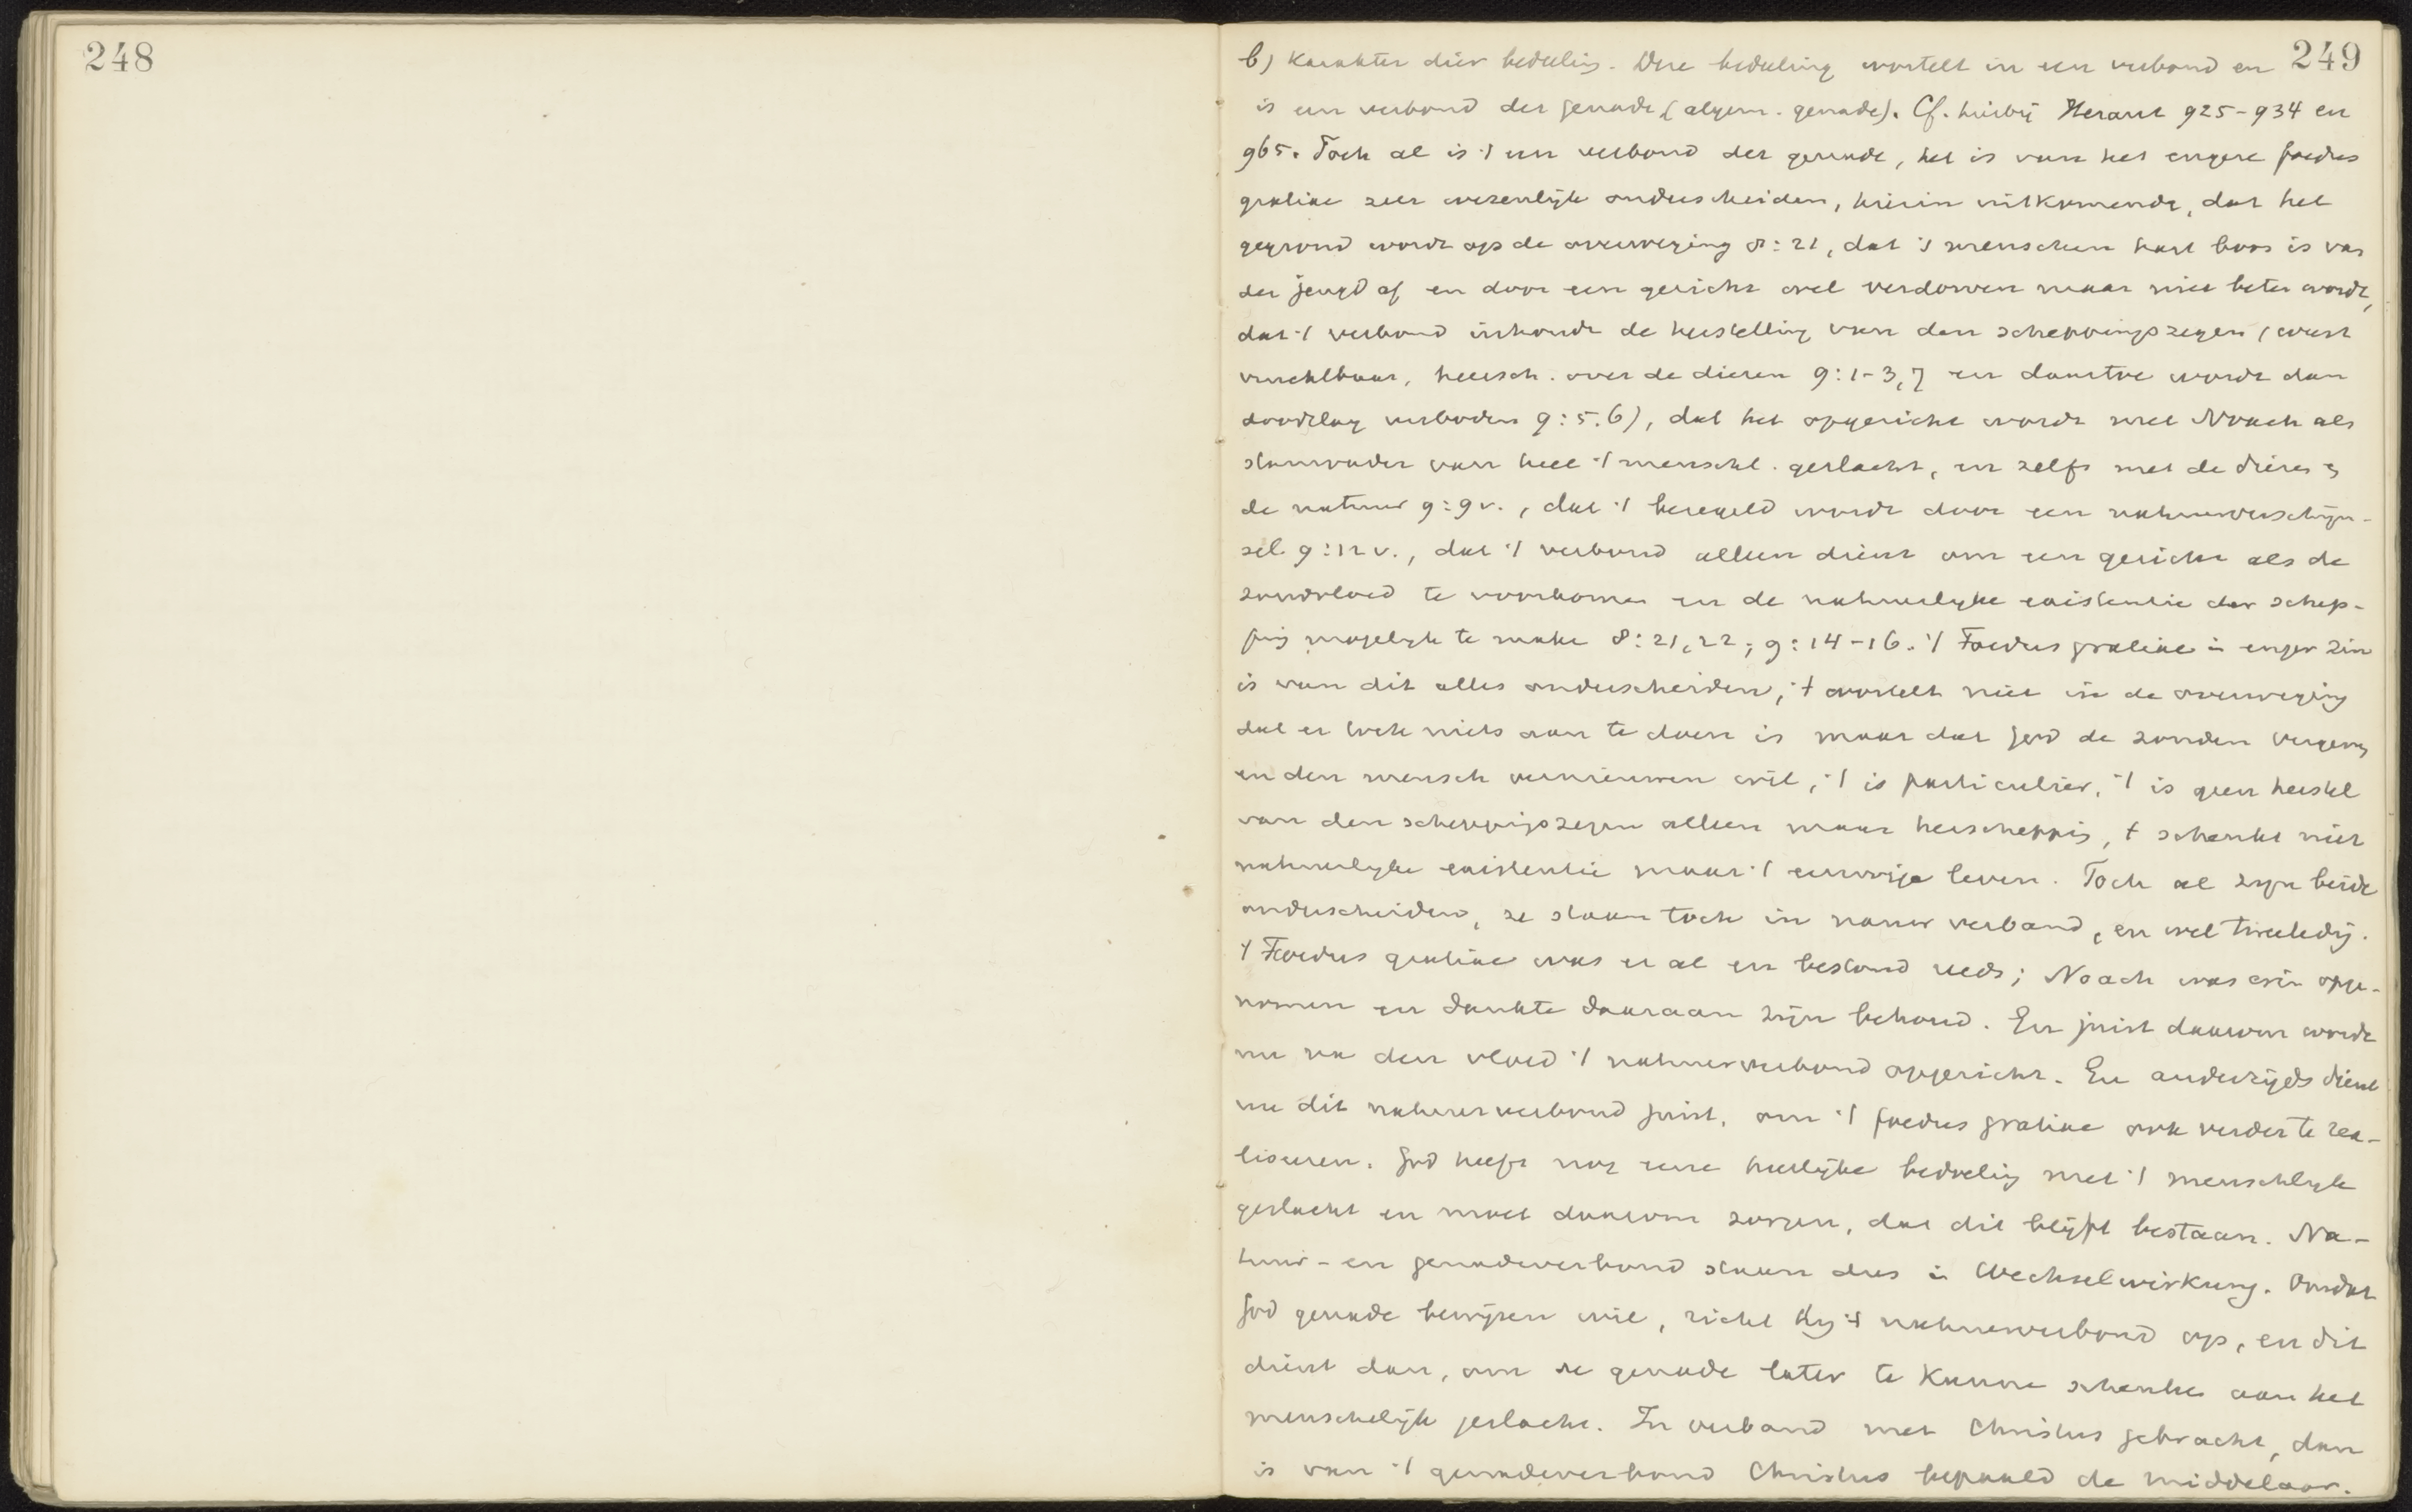 248
249
b) Karakter dier bedeeling. Deze bedeeling wortelt in een verbond en
is een verbond der genade (algem. genade). Cf. hierbij Heraut 925-934 en
965. Toch al is 't een verbond der genade, het is van het engere foedus
gratiae zeer wezenlijk onderscheiden, hierin uitkomende, dat het
gegrond wordt op de overweging 8:21, dat 's menschen hart boos is van
der jeugd af en door een gericht wel verdorven maar niet beter wordt,
dat 't verbond inhoudt de herstelling van den scheppingszegen (weest
vruchtbaar, heersch. over de dieren 9:1-3,7 en daartoe wordt dan
doodslag verboden 9:5.6), dat het opgericht wordt met Noach als
stamvader van heel 't menschl. geslacht, en zelfs met de dieren en
de natuur 9:9v., dat 't bezegeld wordt door een natuurverschijn-
sel 9:12v., dat 't verbond alleen dient om een gericht als de
zondvloed te voorkomen en de natuurlijke existentie der schep-
ping mogelijk te make 8:21,22; 9:14-16. 't Foedus gratiae in enger zin
is van dit alles onderscheiden, 't wortelt niet in de overweging
dat er toch niets aan te doen is maar dat God de zonden vergeven
en den mensch vernieuwen wil, 't is particulier, 't is geen herstel
van den scheppingszegen alleen maar herschepping, t schenkt niet
natuurlijke existentie maar 't eeuwige leven. Toch al zijn beide
onderscheiden, ze staan toch in nauw verband, en wel tweeledig.
't Foedus gratiae was er al en bestond reeds; Noach was erin opge-
nomen en dankte daaraan zijn behoud. En juist daarom wordt
nu na den vloed 't natuurverbond opgericht. En anderzijds dient
nu dit natuurverbond juist, om 't foedus gratiae ook verder te rea-
liseeren. God heeft nog eene heerlijke bedoeling met 't menschlijk
geslacht en moet daarom zorgen, dat dit blijft bestaan. Na-
tuur- en genadeverbond staan dus in Wechselwirkung. Omdat
God genade bewijzen wil, richt Hij 't natuurverbond op, en dit
dient dan, om de genade later te kunne schenken aan het
menschelijk geslacht. In verband met Christus gebracht, dan
is van 't genadeverbond Christus bepaald de middelaar.